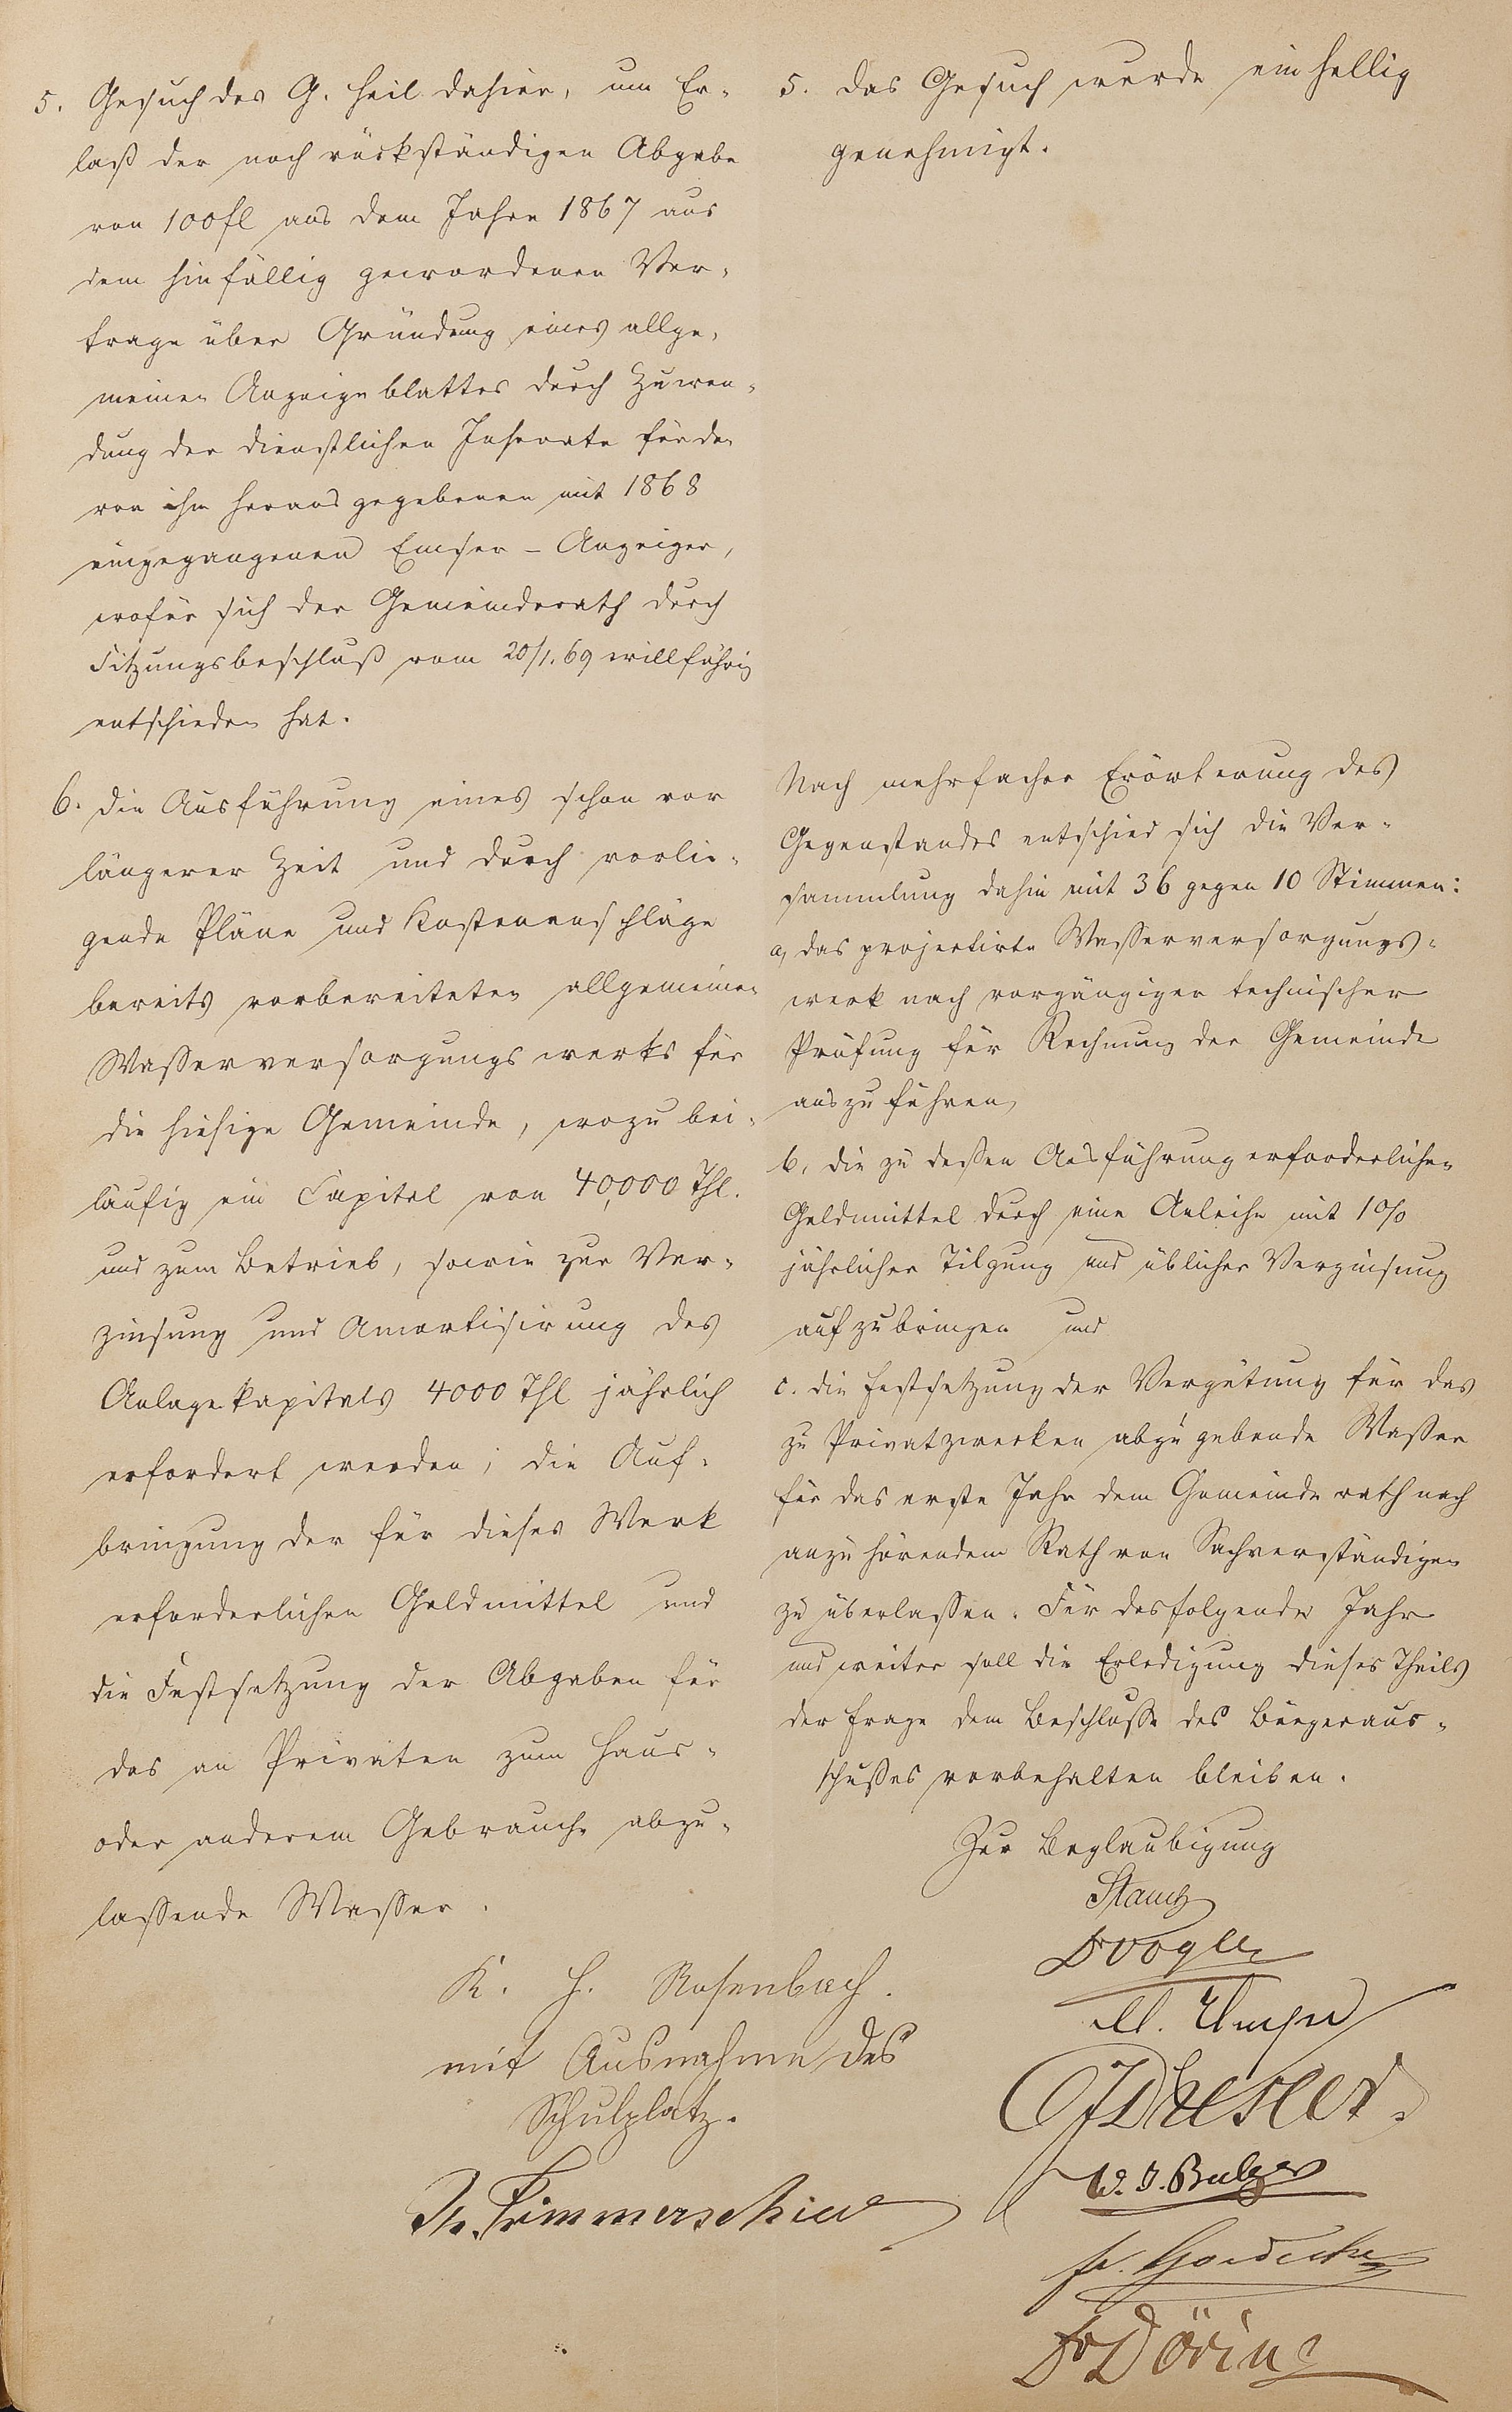 5. Gesuch des G. Heil dahier, um Er-
laß der noch rückständigen Abgabe
von 100 fl aus dem Jahre 1867 aus
dem hinfällig gewordenen Ver-
trage über Gründung eines allge-
meinen Anzeigeblattes durch Zuwen-
dung der dienstlichen Inserate für den
von ihm herausgegebenen mit 1868
eingegangenen Emser-Anzeiger,
wofür sich der Gemeinderath durch
Sitzungsbeschluß vom 20/1.69 willfährig
entschieden hat.
5. Das Gesuch wurde einhellig
genehmigt.
6. Die Ausführung eines schon vor
längerer Zeit und durch vorlie-
gende Pläne und Kostenanschläge
bereits vorbereiteten allgemeinen
Wasserversorgungswerks für
die hiesige Gemeinde, wozu bei-
läufig ein Capital von 40,000 Thl.
und zum Betrieb, sowie zur Ver-
zinsung und Amortisirung des
Anlagekapitals 4000 Thl jährlich
erfordert werden; die Auf-
bringung der für dieses Werk
erforderlichen Geldmittel und
die Festsetzung der Abgaben für
das an Privaten zum Haus-
oder anderem Gebrauche abzu-
lassende Wasser.
Nach mehrfacher Erörterung des
Gegenstandes entschied sich die Ver-
sammlung dahin mit 36 gegen 10 Stimmen:
a, das projectirte Wasserversorgungs-
werk nach vorgängiger technischer
Prüfung für Rechnung der Gemeinde
auszuführen,
b, die zu dessen Ausführung erforderlichen
Geldmittel durch eine Anleihe mit 1%
jährlicher Tilgung und üblicher Verzinsung
aufzubringen und
c. die Festsetzung der Vergütung für das
zu Privatzwecken abzugebende Wasser
für das erste Jahr dem Gemeinderath nach
anzuhörendem Rath von Sachverständigen
zu überlassen. Für das folgende Jahr
und weiter soll die Erledigung dieses Theils
der Frage dem Beschlusse des Bürgeraus-
schusses vorbehalten bleiben.
Zur Beglaubigung
K. H. Rosenbach.
mit Ausnahme des
Schulplatz.
Dr Vogler
W. J. Balzer
Dr Döring